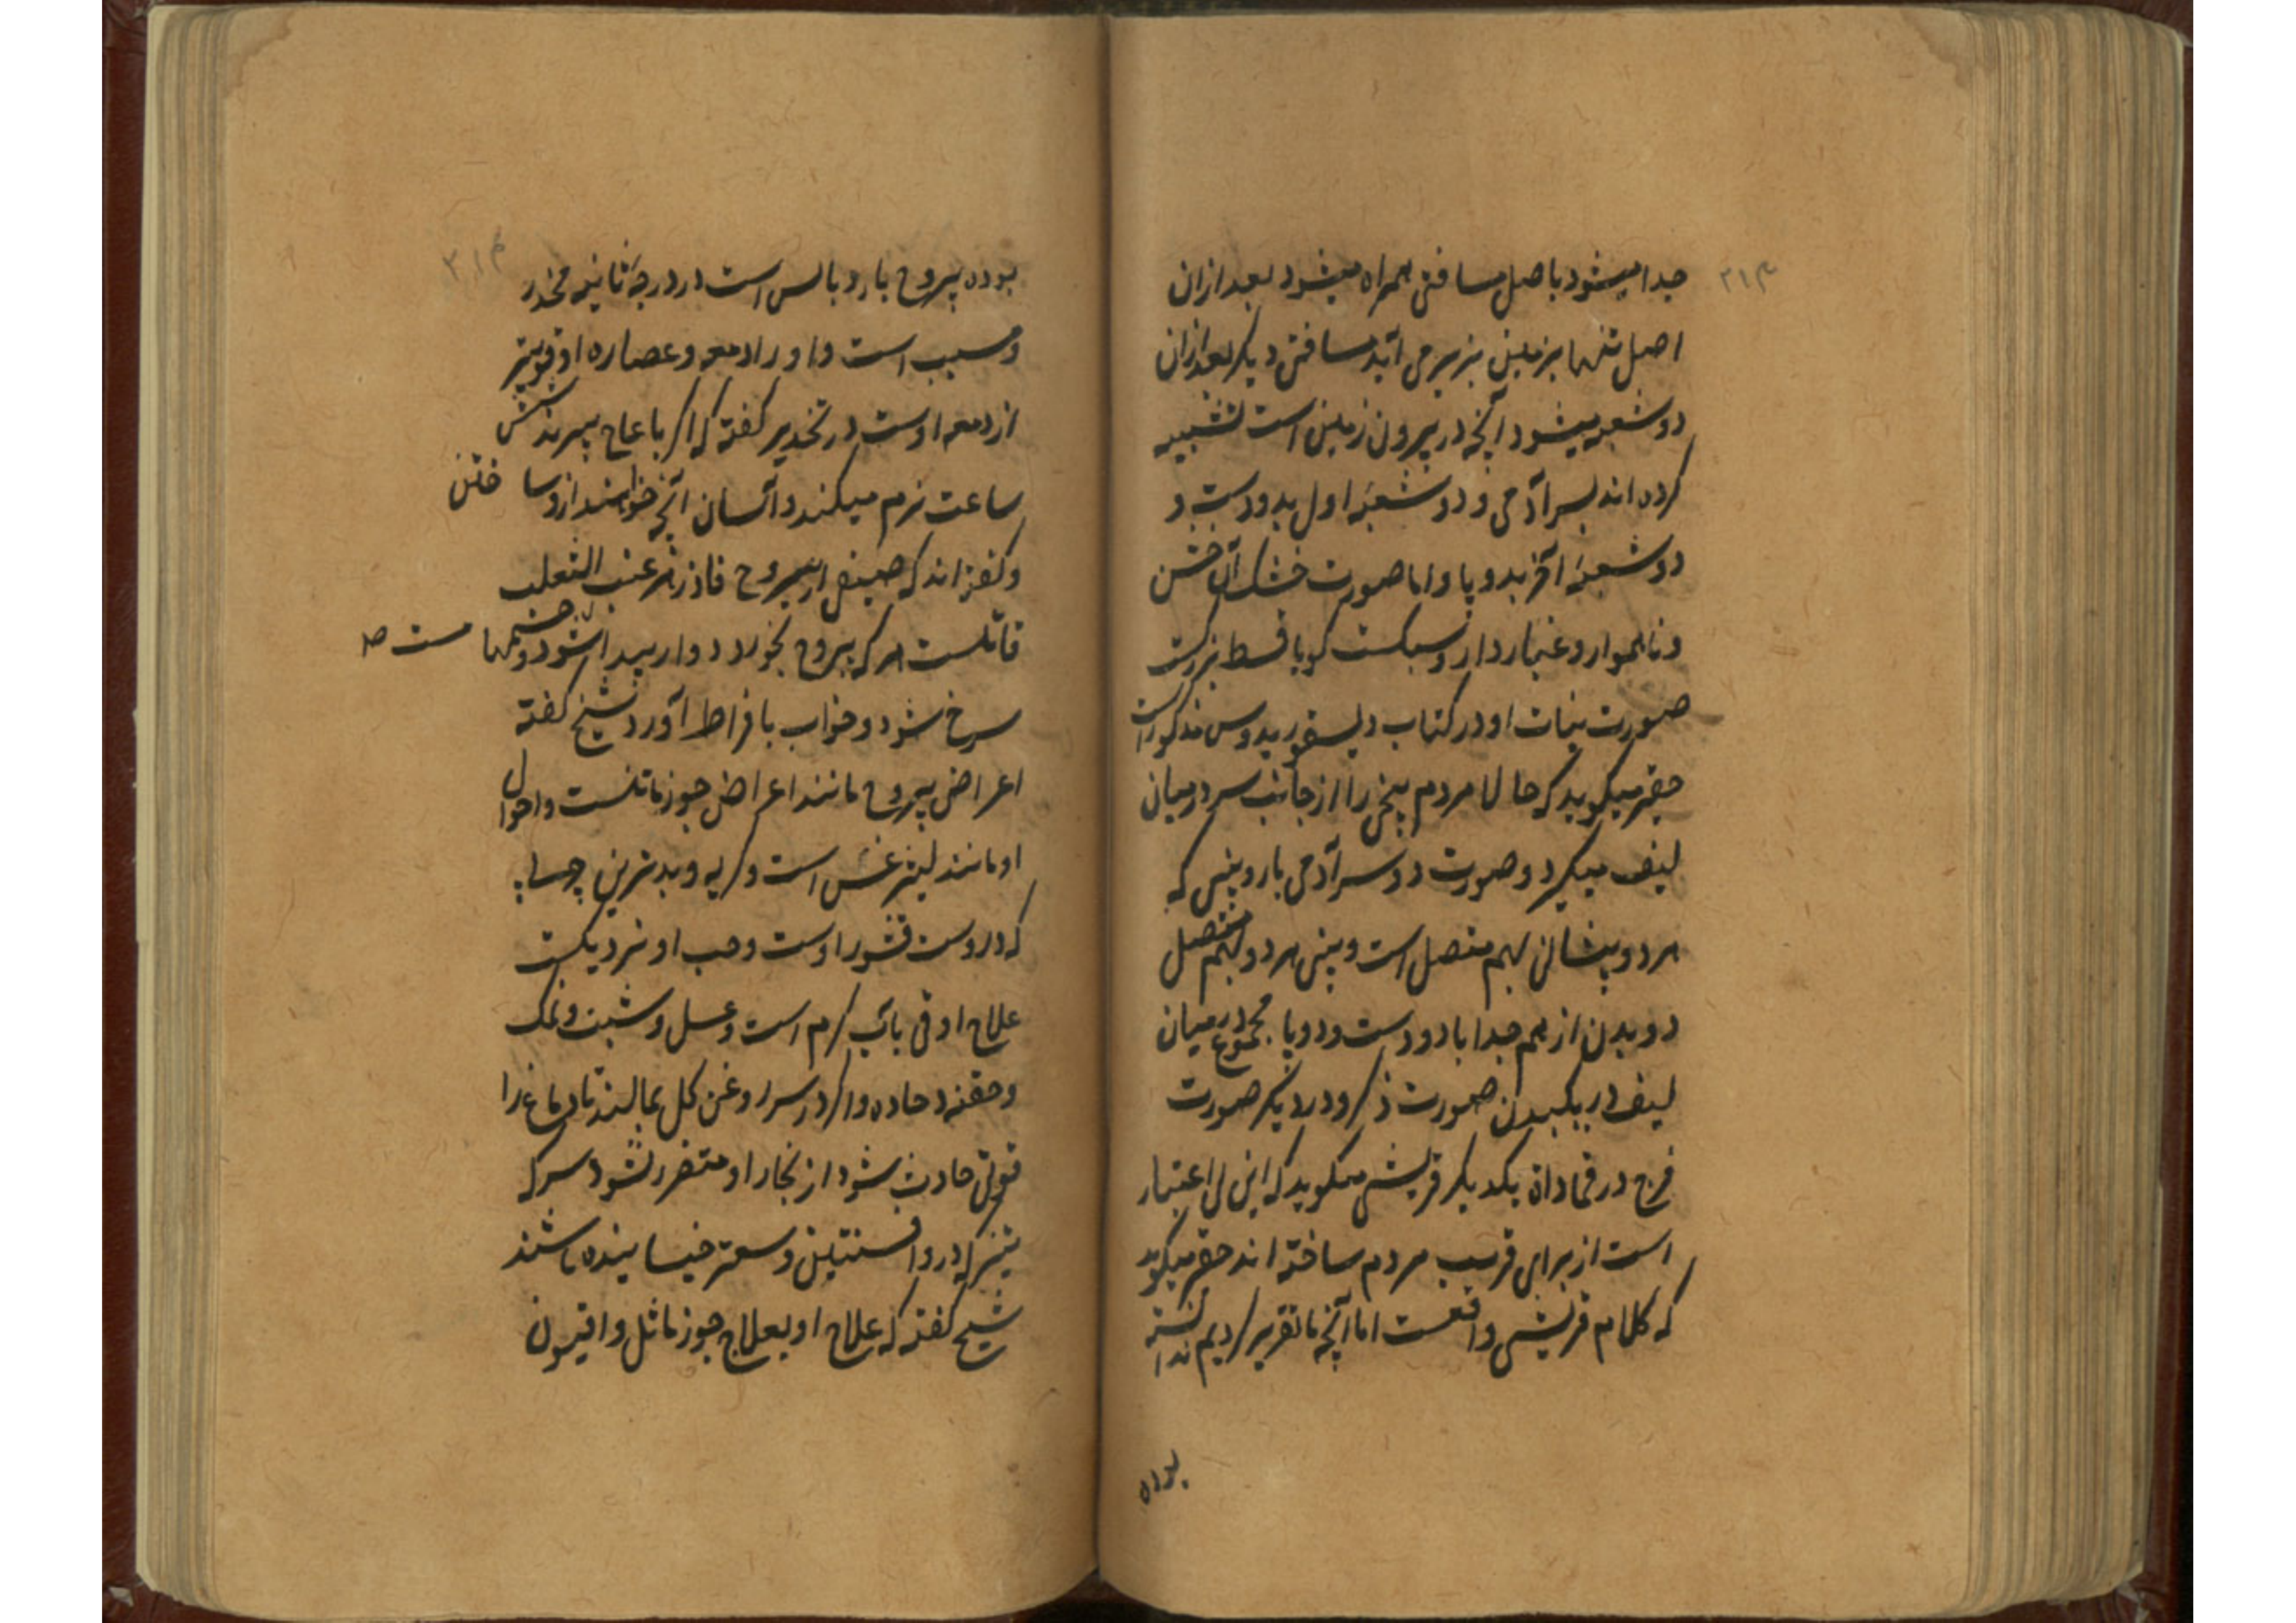 جدا میشود با اصل مسافتی همراه میشود بعد ازان
اصل تنها بزمین بزیر می آید مسافتی دیگر بعد ازان
دو شعبه میشود آنچه در بیرون زمین است تشبیه
کرده اند بسر آدمی و دو شعبهٔ اول بدو دست و
دو شعبهٔ آخر بدو پا و اما صورت خشک آن خشن
و ناهموار و غبار دار و سبکست گویا قسط بزرگست
صورت نبات او در کتاب دیسقوریدوس مذکور است
حقیر میگوید که حالا مردم بیخی را از جانب سر درمیان
لیف میگیرد و صورت دو سر آدمی با رو بینی که
هر دو پیشانی بهم متصل است و بینی هر دو بهم متصل
دو بدن از هم جدا با دو دست و دو پا مجموع درمیان
لیف در یک بدن صورت ذکر و در دیگر صورت
فرج در قماداة یکدیگر قریشی میگوید که این بی اعتبار
است از برای فریب مردم ساخته اند حقیر میگوید
که کلام قریشی واقعست اما آنچه ما تقریر کردیم ندانسته
بوده
بوده یبروح بارد یابس است در درجهٔ ثانیه مخدر
و مسبب است و او را دمعه و عصاره او قویتر
از دمعه اوست در تخدیر گفته که اگر با عاج بپزند شش
ساعت نرم میکند و آسان آنچه خواهند ازو ساختن
و گفته اند که صنفی از یبروح فاذزهر عنب الثعلب
قاتلست هر که یبروح بخورد دوار پیدا شود و چشمها مست
سرخ شود و خواب بافراط آورد شیخ گفته
اعراض یبروح مانند اعراض جوز ماثلست و احوال
او مانند لیثرغس است و کریه و بدترین
که دروست قشور اوست و حب او نزدیکست
علاج او قی بآب گرم است و عسل و شبت و نمک
و حقنه حاده و اگر در سر روغن گل بمالند تا دماغ را
قوتی حادث شود از بخار او متضرر نشود سرکه
تیز که درو افسنتین و سعتر خیسانیده باشند
شیخ گفته که علاج او بعلاج جوز ماثل و افیون